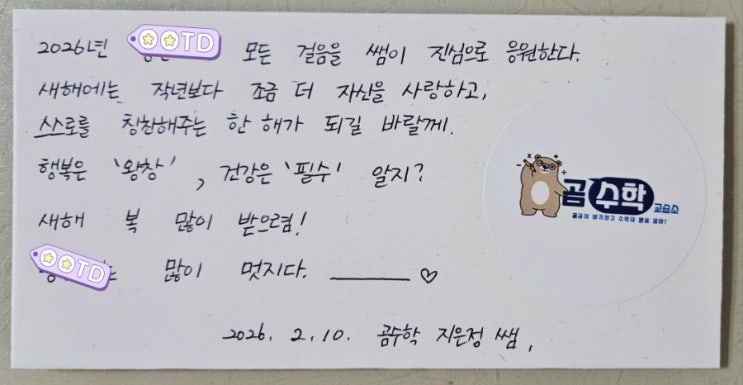 2026년 OOTD 모든 걸음을 쌤이 진심으로 응원한다.
새해에는 작년보다 조금 더 자신을 사랑하고,
스스로를 칭찬해주는 한 해가 되길 바랄게.
행복은 '왕창', 건강은 '필수' 알지?
새해 복 많이 받으렴!
OOTD 많이 멋지다. ♡
2026. 2. 10. 곰수학 지은정 쌤.
곰수학 교습소
곰곰이 생각하고 수학에 문을 열다!